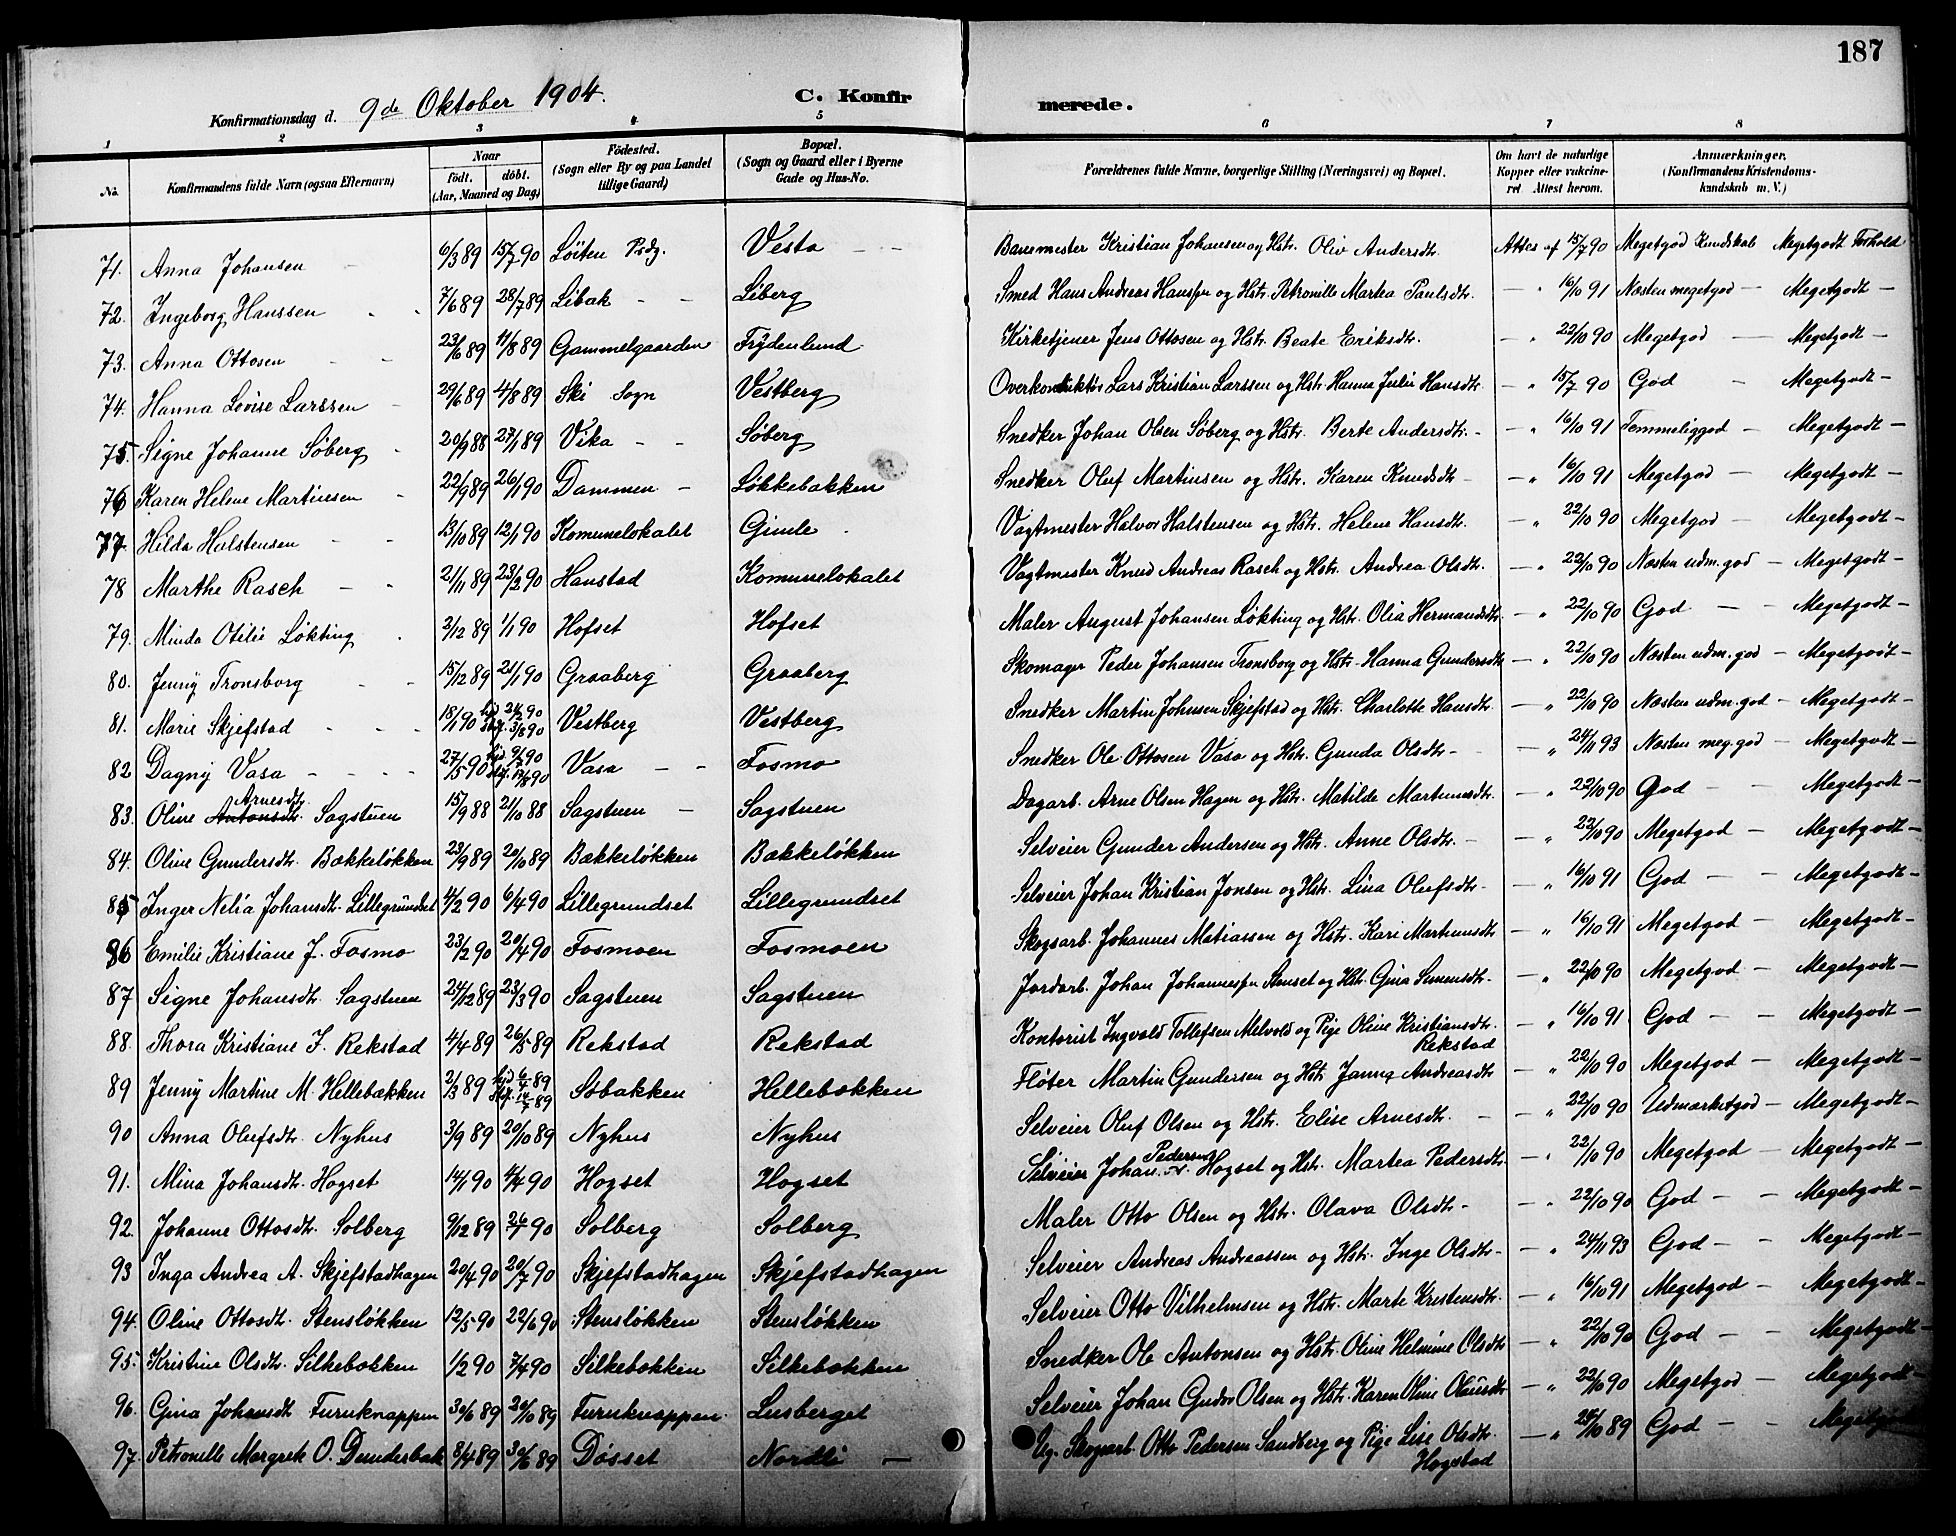 187
Konfirmationsdag d. 9de Oktober 1904. C. Konfirmerede.
1 2 3 4 5 6 7 8
No. Konfirmandens fulde Navn (ogsaa Efternavn) Naar født. døbt. (Aar, Maaned og Dag) Födested. (Sogn eller By og paa Landet tillige Gaard) Bopæl. (Sogn og Gaard eller i Byerne Gade og Hus-No. Forældrenes fulde Navne, borgerlige Stilling (Næringsvei) og Bopæl. Om havt de naturlige Kopper eller vakcineret Attest herom. Anmærkninger. (Konfirmandens Kristendomskundskab m. V.)
71. Anna Johansen 6/3 89 15/7 90 Løiten Prdg. Vesta Banemester Kristian Johansen og Hstr. Oliv Andersdtr. Attes af 15/7 90 Megetgod Kundskab Megetgodt Forhold
72. Ingeborg Hanssen 7/6 89 28/7 89 Libak Liberg Smed Hans Andreas Hanssen og Hstr. Petronille Martea Paulsdtr. — " 16/10 91 Næsten megetgod — Megetgodt —
73. Anna Ottosen 23/6 89 11/8 89 Gammelgaarden Frydenlund Kirketjener Jens Ottosen og Hstr. Beate Eriksdtr. — " 22/10 90 Megetgod — Megetgodt —
74. Hanna Lovise Larssen 29/6 89 4/8 89 Ski Sogn Vestberg Overkonduktør Lars Kristian Larssen og Hstr. Hanna Julie Hansdtr. — " 15/7 90 God — Megetgodt —
75. Signe Johanne Søberg 20/9 88 27/1 89 Vika Søberg Snedker Johan Olsen Søberg og Hstr. Berte Andersdtr. — " 16/10 91 Temmeliggod — Megetgodt —
76 Karen Helene Martinsen 22/9 89 26/1 90 Dammen Løkkebakken Snedker Oluf Martinsen og Hstr. Karen Knudsdtr — " 16/10 91 Megetgod — Megetgodt —
77. Hilda Halstensen 13/10 89 12/1 90 Komunelokalet Gimle Vagtmester Halvor Halstensen og Hstr. Helene Hansdtr. — " 22/10 90 Megetgod — Megetgodt —
78 Marthe Rasch 21/11 89 23/2 90 Hanstad Komunelokalet Vagtmester Knud Andreas Rasch og Hstr. Andrea Olsdtr. — " 22/10 90 Næsten udm. god — Megetgodt —
79. Minda Otilie Løkting 2/12 89 1/1 90 Hofset Hofset Maler August Johansen Løkting og Hstr. Olia Hermansdtr. — " 22/10 90 God — Megetgodt —
80. Jenny Tronsborg 15/12 89 21/1 90 Graaberg Graaberg Skomager Peder Johansen Tronsborg og Hstr. Hanna Gundersdtr — " 22/10 90 Næsten udm. god — Megetgodt —
81. Marie Skjefstad 18/1 90 24/2 90 3/8 90 Vestberg Vestberg Snedker Martin Johnsen Skjefstad og Hstr. Charlotte Hansdtr. — " 22/10 90 Næsten udm. god — Megetgodt —
82 Dagny Vasa 27/5 90 Vasa Fosmo Snedker Ole Ottosen Vasa og Hstr. Gunda Olsdtr — " 24/11 93 Næsten meg. god — Megetgodt —
83. Oline Antonsdtr. Arnesdtr. Sagstuen 15/9 88 21/10 88 Sagstuen Sagstuen Dagarb. Arne Olsen Hagen og Hstr. Matilde Martinusdtr. — " 22/10 90 God — Megetgodt —
84. Oline Gundersdtr. Bækkeløkken 23/9 89 20/10 89 Bækkeløkken Bækkeløkken Selveier Gunder Andersen og Hstr. Anne Olsdtr. — " 22/10 90 Megetgod — Megetgodt —
85 Inger Nelia Johansdtr. Lillegrundset 14/2 90 6/4 90 Lillegrundset Lillegrundset Selveier Johan Kristian Jonsen og Hstr. Lina Olufsdtr — " 16/10 91 God — Megetgodt —
86 Emilie Kristiane J. Fosmo 23/2 90 20/4 90 Fosmoen Fosmoen Skogsarb. Johannes Matiassen og Hstr. Kari Martinusdtr — " 16/10 91 Megetgod — Megetgodt —
87 Signe Johansdtr. Sagstuen 24/12 89 23/3 90 Sagstuen Sagstuen Jordarb. Johan Johannessen Stenset og Hstr. Gina Simensdtr. — " 22/10 90 Megetgod — Megetgodt —
88. Thora Kristiane J. Rekstad 4/4 89 26/5 89 Rekstad Rekstad Kontorist Ingvald Tollefsen Melvold og Pige Oline Kristiansdtr. Rekstad — " 16/10 91 God — Megetgodt —
89 Jenny Martine M. Hellebækken 2/3 89 6/4 89 14/7 89 Søbakken Hellebækken Fløter Martin Gundersen og Hstr Janna Andreasdtr — " 22/10 90 Megetgod — Megetgodt —
90 Anna Olufsdtr. Nyhus 3/9 89 20/10 89 Nyhus Nyhus Selveier Oluf Olsen og Hstr. Elise Arnesdtr. — " 22/10 90 Udmærketgod — Megetgodt —
91. Mina Johansdtr. Hogset 14/1 90 4/4 90 Hogset Hogset Selveier Johan Pedersen Hogset og Hstr. Martea Pedersdtr. — " 22/10 90 Megetgod — Megetgodt —
92. Johanne Ottosdtr. Solberg 9/12 89 26/1 90 Solberg Solberg Maler Otto Olsen og Hstr. Olava Olsdtr — " 22/10 90 God — Megetgodt —
93 Inga Andrea A. Skjefstadhagen 20/4 90 20/7 90 Skjefstadhagen Skjefstadhagen Selveier Andreas Andreassen og Hstr. Inge Olsdtr — " 24/11 93 God — Megetgodt —
94. Oline Ottosdtr. Stensløkken 12/5 90 22/6 90 Stensløkken Stensløkken Selveier Otto Vilhelmsen og Hstr. Marte Kristensdtr. — " 16/10 91 Megetgod — Megetgodt —
95. Kristine Olsdtr. Silkebækken 1/2 90 7/4 90 Silkebækken Silkebækken Snedker Ole Antonsen og Hstr. Oline Helmine Olsdtr — " 22/10 90 God — Megetgodt —
96. Gina Johansdtr Furuknappen 30/6 89 20/10 89 Furuknappen Lusberget Selveier Johan Gudor Olsen og Hstr. Karen Oline Olausdtr — " 22/10 90 Megetgod — Megetgodt —
97. Petronille Margrete O. Dunderbak 8/4 89 30/6 89 Døsset Nordli — Ug. Skogarb. Otto Pedersen Sandberg og Pige Lise Olsdtr. Hogstad — " 10 89 God — Megetgodt